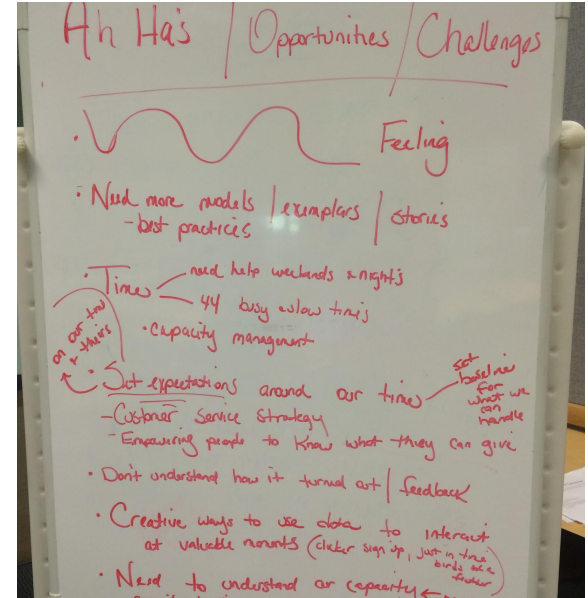 Ah Ha's / Opportunities / Challenges
• Feeling
• Need more models / exemplars / stories
- best practices
• Time
need help weekends & nights
busy & slow times
• Capacity management
on our time
+ theirs
• Set expectations around our time
set
baseline
for
what we
can
handle
- Customer Service Strategy
- Empowering people to know what they can give
• Don't understand how it turned out / feedback
• Creative ways to use data to interact
at valuable moments (clicker sign up, just in time
• Need to understand our capacity